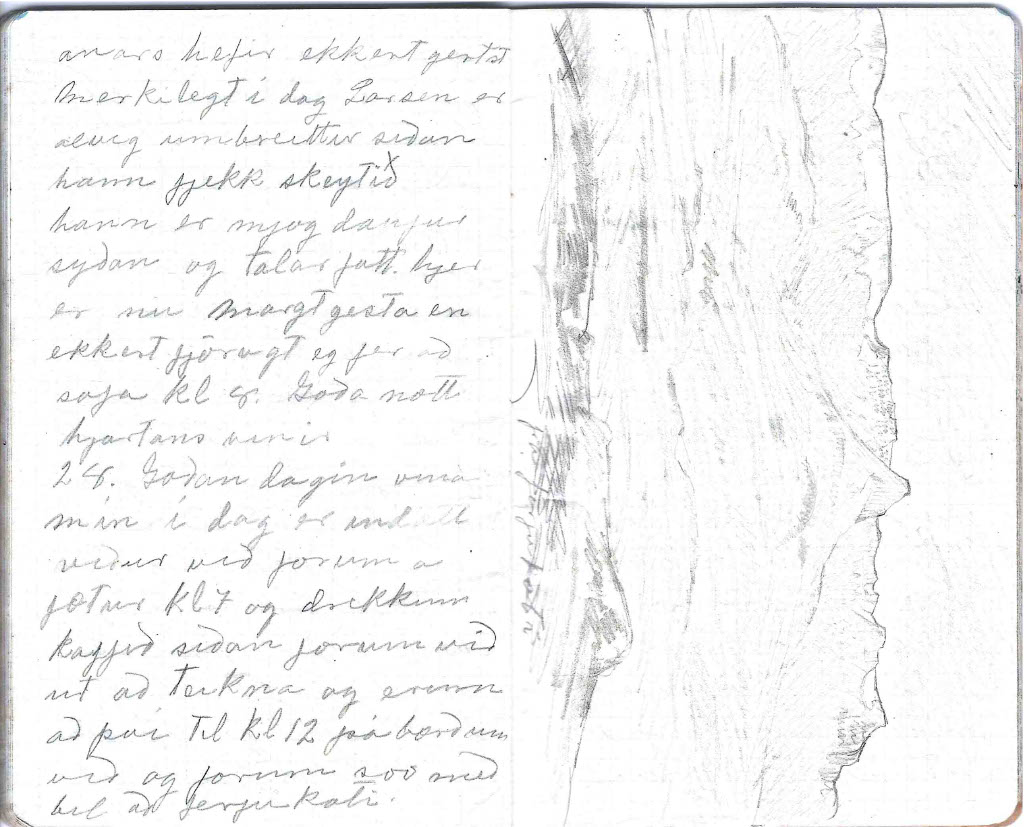 anars hefir ekkert gertst
merkilegt i dag Larsen er
alveg umbreittur siðan
hann fjekk skeytið x
hann er mjog daufur
syðan og talar fátt. hjer
er nu margt gesta en
ekkert fjörugt eg fer að
sofa kl 8. Goða nott
hjartans vinir
28. Goðan dagin vina
min i dag er indælt
veður við forum a
fætur kl 7 og drekkum
kaffið siðan forum við
út að teikna og erum
að þvi til kl 12 þá borðum
við og forum svo með
bil að ferjukoti.